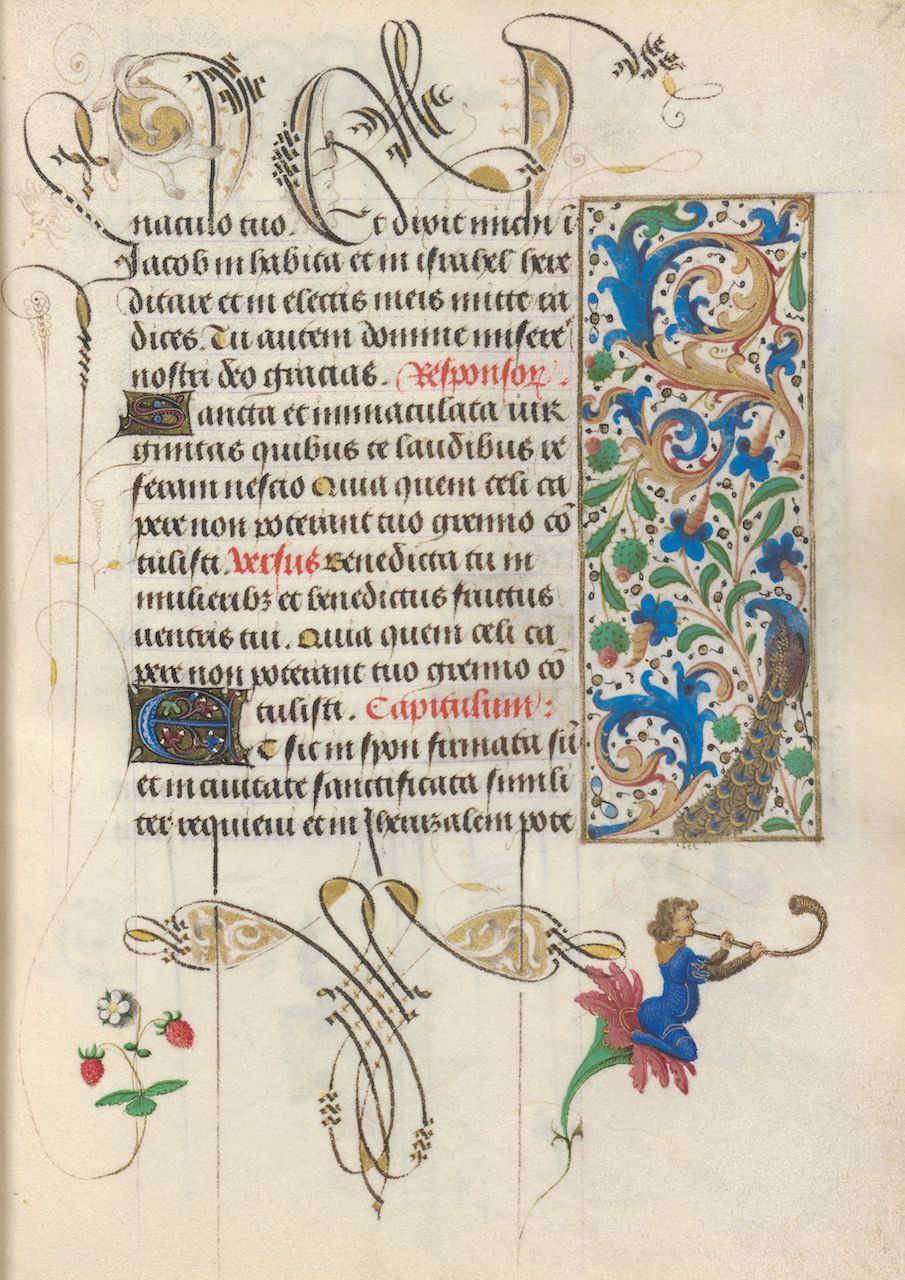 naculo tuo. Et dixit michi ī
Jacob inhabita et in israhel here
ditare et in electis meis mitte ra
dices. Tu autem domine misere
nostri deo gracias. Responsor.
Sancta et inmaculata uir
ginitas quibus te laudibus re
feram nescio Quia quem celi ca
pere non poterant tuo gremio cō
tulisti. Versus Benedicta tu in
mulieribꝫ et benedictus fructus
uentris tui. Quia quem celi ca
pere non poterant tuo gremio cō
tulisti. Capitulum:
Et sic in syon firmata sū
et in ciuitate sanctificata simili
ter requieui et in Jheruzalem pote